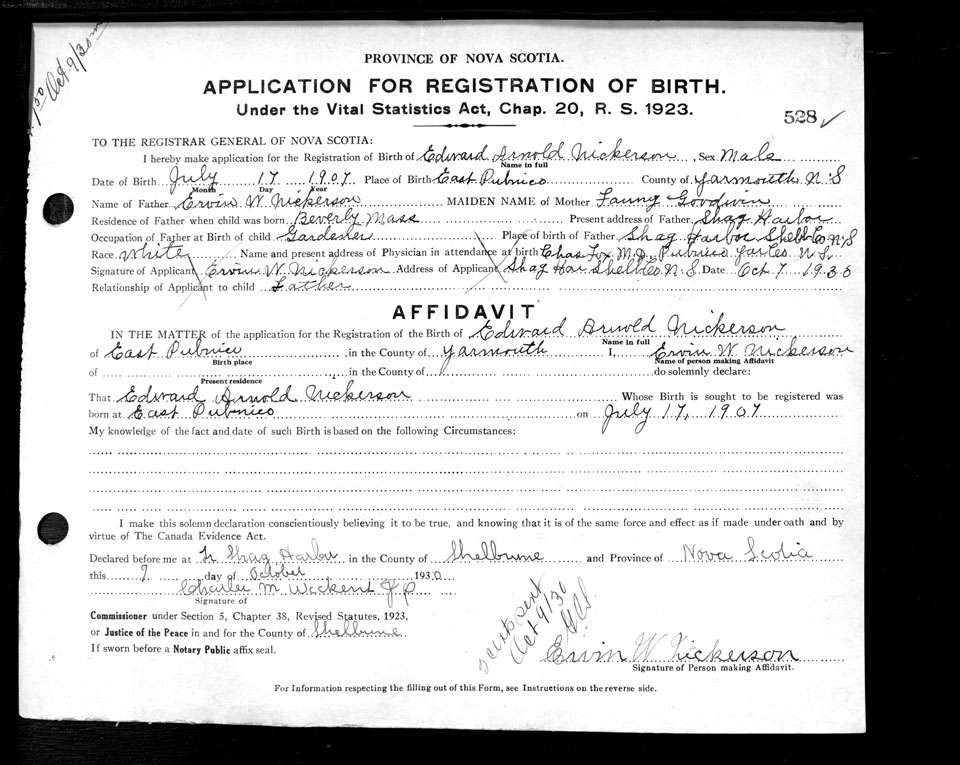 1.50 Oct. 9/30
PROVINCE OF NOVA SCOTIA.
APPLICATION FOR REGISTRATION OF BIRTH.
Under the Vital Statistics Act, Chap. 20, R. S. 1923.
528 ✓
TO THE REGISTRAR GENERAL OF NOVA SCOTIA:
I hereby make application for the Registration of Birth of Edward Arnold Nickerson, Sex Male
Name in full
Date of Birth July 17 1907 Place of Birth East Pubnico County of Yarmouth N.S
Month Day Year
Name of Father Ervin W. Nickerson MAIDEN NAME of Mother Fanny Goodwin
Residence of Father when child was born Beverly Mass Present address of Father Shag Harbor
Occupation of Father at Birth of child Gardener Place of birth of Father Shag Harbor Shelb Co N.S
Race White Name and present address of Physician in attendance at birth Chas Fox M.D. Pubnico Yar Co. N.S.
Signature of Applicant Ervin W. Nickerson Address of Applicant Shag Har Shelb Co. N.S. Date Oct 7 1930
Relationship of Applicant to child Father
AFFIDAVIT
IN THE MATTER of the application for the Registration of the Birth of Edward Arnold Nickerson
Name in full
of East Pubnico in the County of Yarmouth I, Ervin W Nickerson
Birth place Name of person making Affidavit
of in the County of do solemnly declare:
Present residence
That Edward Arnold Nickerson Whose Birth is sought to be registered was
born at East Pubnico on July 17, 1907
My knowledge of the fact and date of such Birth is based on the following Circumstances:
I make this solemn declaration conscientiously believing it to be true, and knowing that it is of the same force and effect as if made under oath and by
virtue of The Canada Evidence Act.
Declared before me at Shag Harbor in the County of Shelburne and Province of Nova Scotia
this 7 day of October 1930
Charles M J P
Signature of
Commissioner under Section 5, Chapter 38, Revised Statutes, 1923,
or Justice of the Peace in and for the County of Shelburne
If sworn before a Notary Public affix seal.
sent
Oct 9/30
Ervin W Nickerson
Signature of Person making Affidavit.
For Information respecting the filling out of this Form, see Instructions on the reverse side.